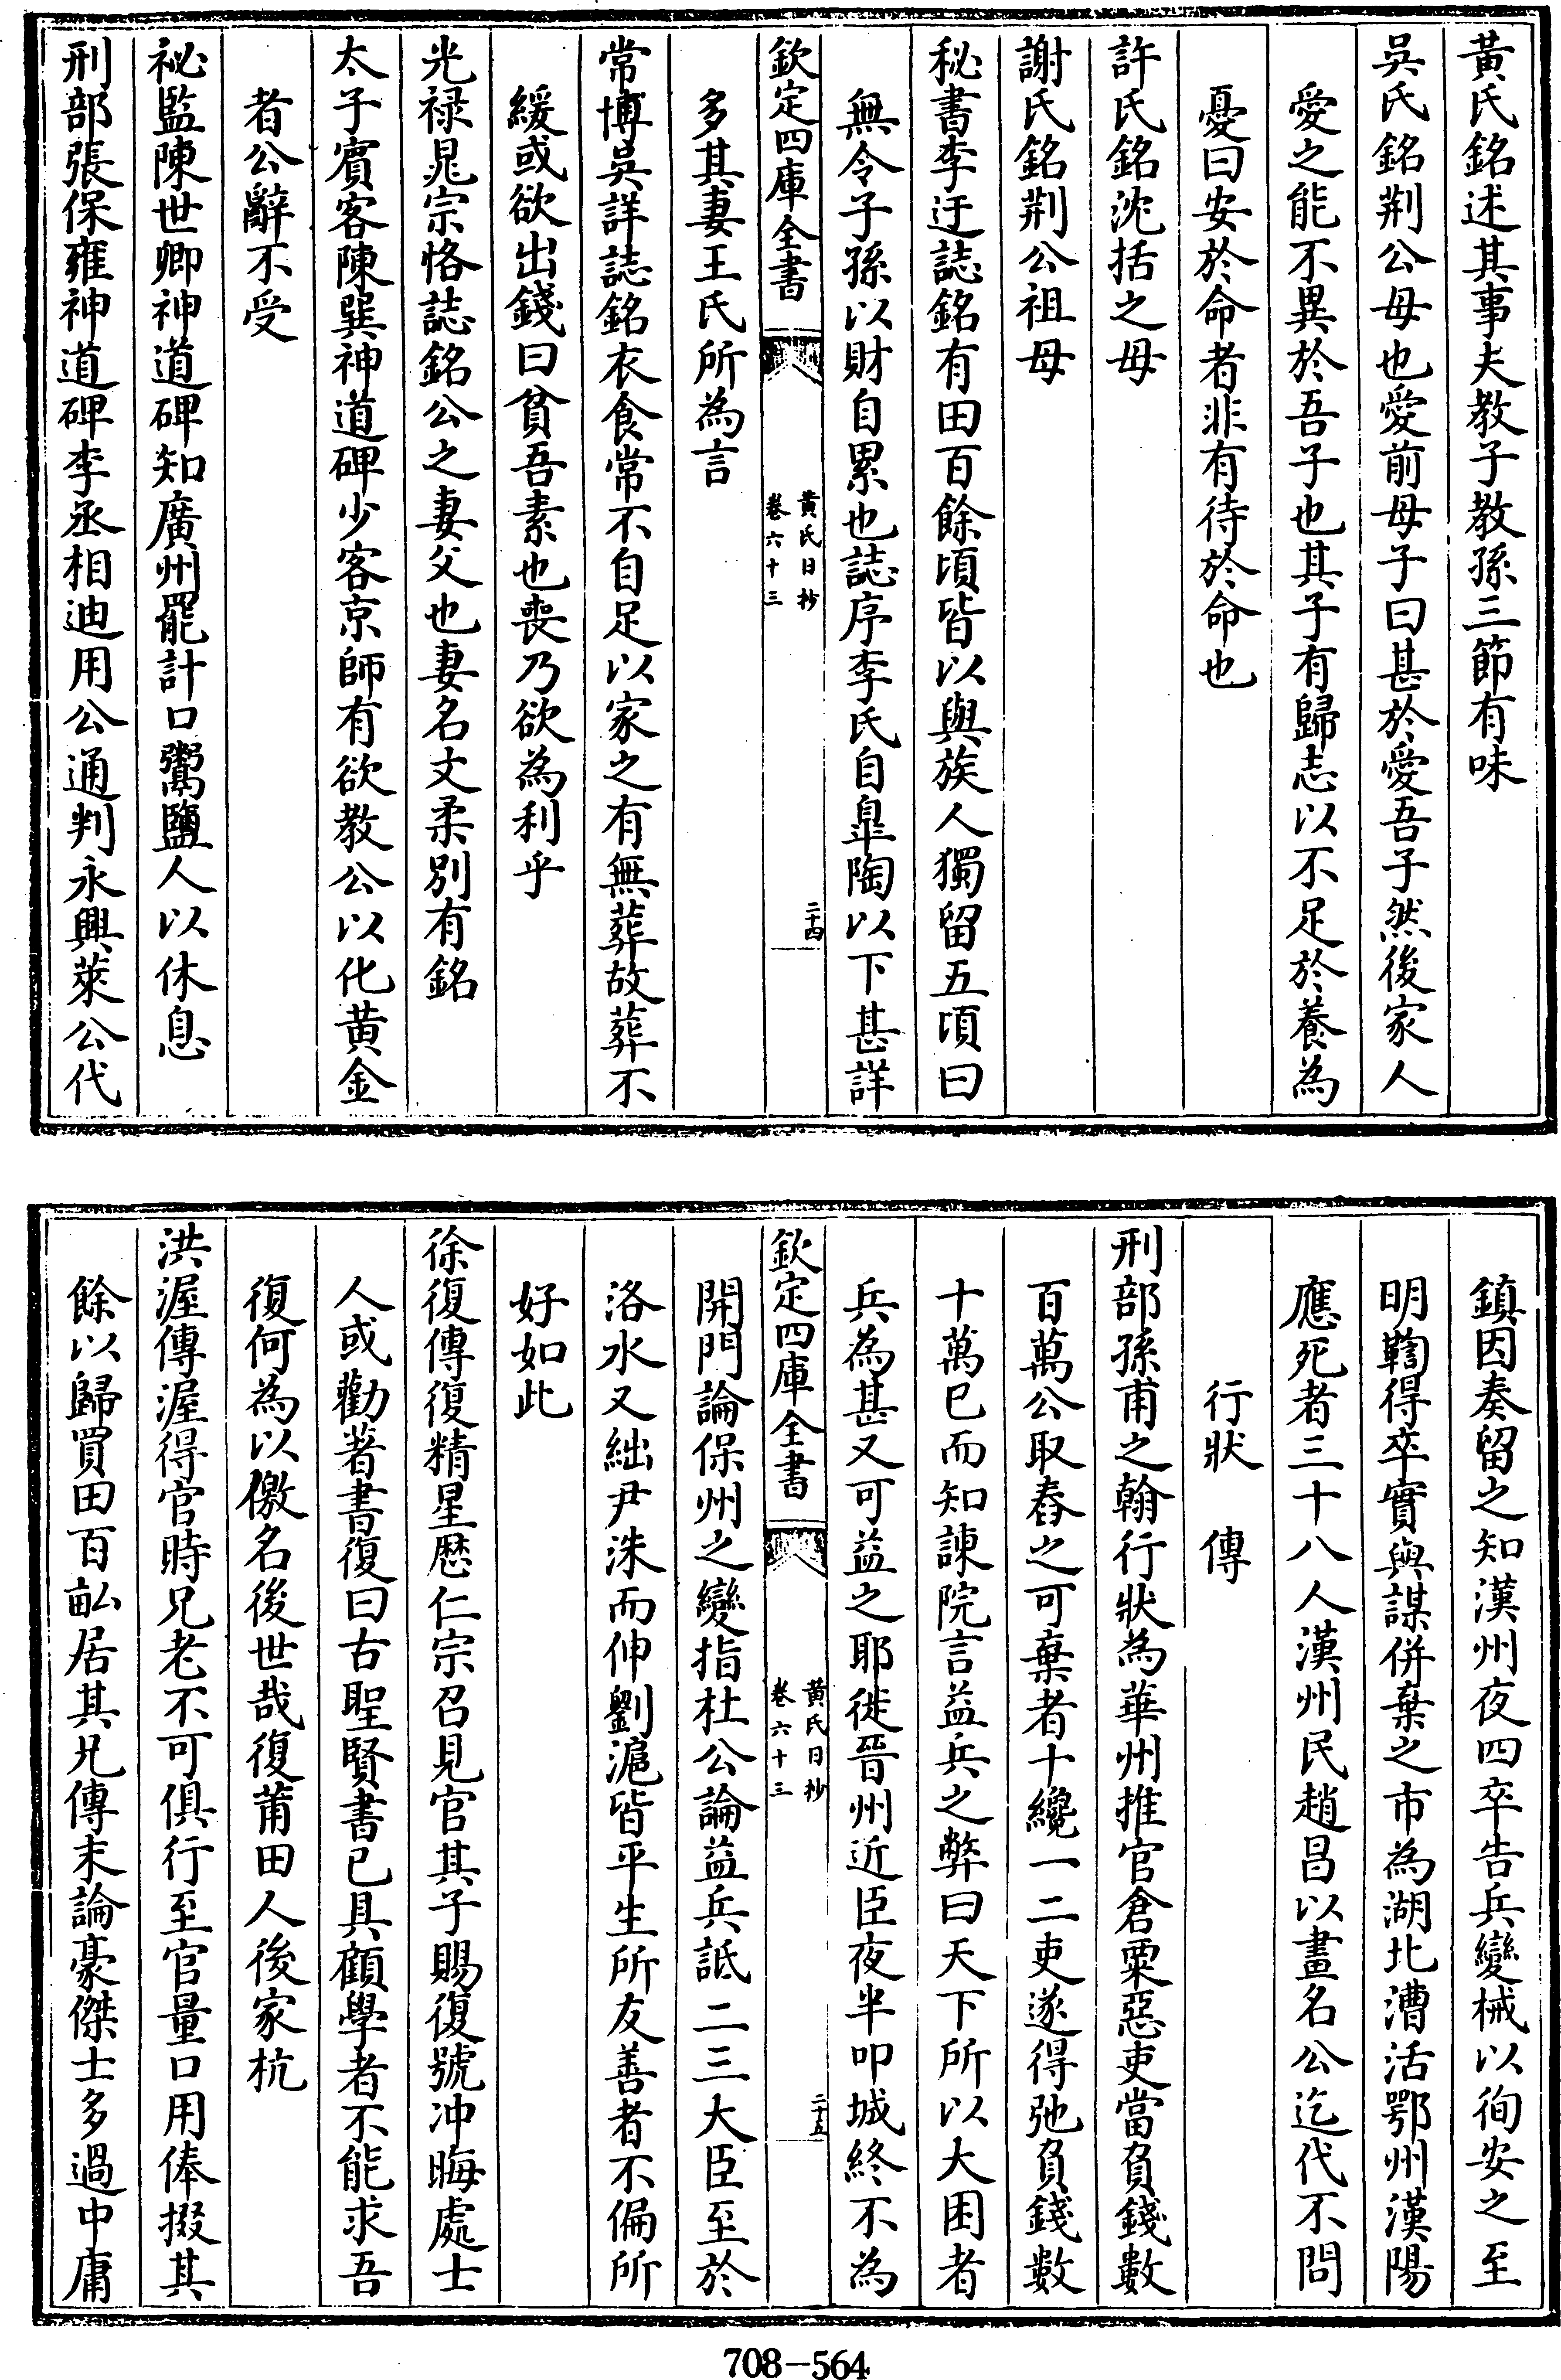 黃氏銘述其事夫教子教孫三節有味
吳氏銘荆公母也愛前母子曰甚於愛吾子然後家人
愛之能不異於吾子也其子有歸志以不足於養為
憂曰安於命者非有待於命也
許氏銘沈括之母
謝氏銘荆公祖母
秘書李迂誌銘有田百餘頃皆以與族人獨留五頃曰
無令子孫以財自累也誌序李氏自臯陶以下甚詳
欽定四庫全書
黃氏日抄
卷六十三
二十四
多其妻王氏所為言
常博吳詳誌銘衣食常不自足以家之有無葬故葬不
緩或欲出錢曰貧吾素也喪乃欲為利乎
光禄晁宗恪誌銘公之妻父也妻名文柔別有銘
太子賓客陳巽神道碑少客京師有欲教公以化黃金
者公辭不受
祕監陳世卿神道碑知廣州罷計口鬻鹽人以休息
刑部張保雍神道碑李丞相迪用公通判永興萊公代
鎮因奏留之知漢州夜四卒告兵變械以徇安之至
明鞫得卒實與謀併棄之市為湖北漕活鄂州漢陽
應死者三十八人漢州民趙昌以畫名公迄代不問
行狀　傳
刑部孫甫之翰行狀為華州推官倉粟惡吏當負錢數
百萬公取舂之可棄者十纔一二吏遂得弛負錢數
十萬已而知諫院言益兵之弊曰天下所以大困者
兵為甚又可益之耶徙晉州近臣夜半叩城終不為
欽定四庫全書
黃氏日抄
卷六十三
二十五
開門論保州之變指杜公論益兵詆二三大臣至於
洛水又絀尹洙而伸劉滬皆平生所友善者不偏所
好如此
徐復傳復精星歴仁宗召見官其子賜復號冲晦處士
人或勸著書復曰古聖賢書已具顧學者不能求吾
復何為以儌名後世哉復莆田人後家杭
洪渥傳渥得官時兄老不可俱行至官量口用俸掇其
餘以歸買田百畝居其兄傳末論豪傑士多過中庸
708-564